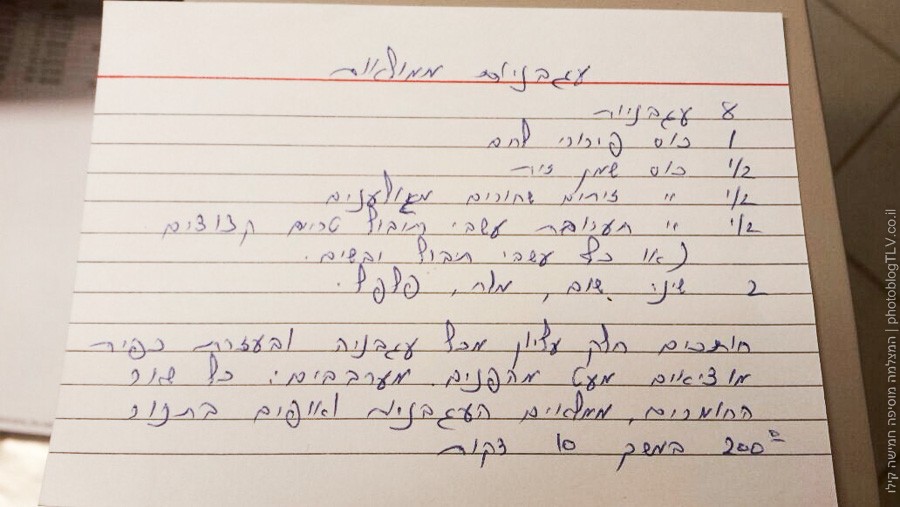 עגבניות ממולאות
8 עגבניות
1 כוס פירורי לחם
1/2 כוס שמן זית
1/2 " זיתים שחורים מגולענים
1/2 " תערובת עשבי תיבול טריים קצוצים
(או כל עשבי תיבול יבשים.
2 שיני שום, מלח, פלפל.
חותכים חלק עליון מכל עגבניה ובעזרת כפית
מוציאים מעט מהפנים. מערבבים: כל שאר
החומרים, ממלאים העגבניות ואופים בתנור
200° במשך 10 דקות
המצלמה מוסיפה חמישה קילו | photoblogTLV.co.il